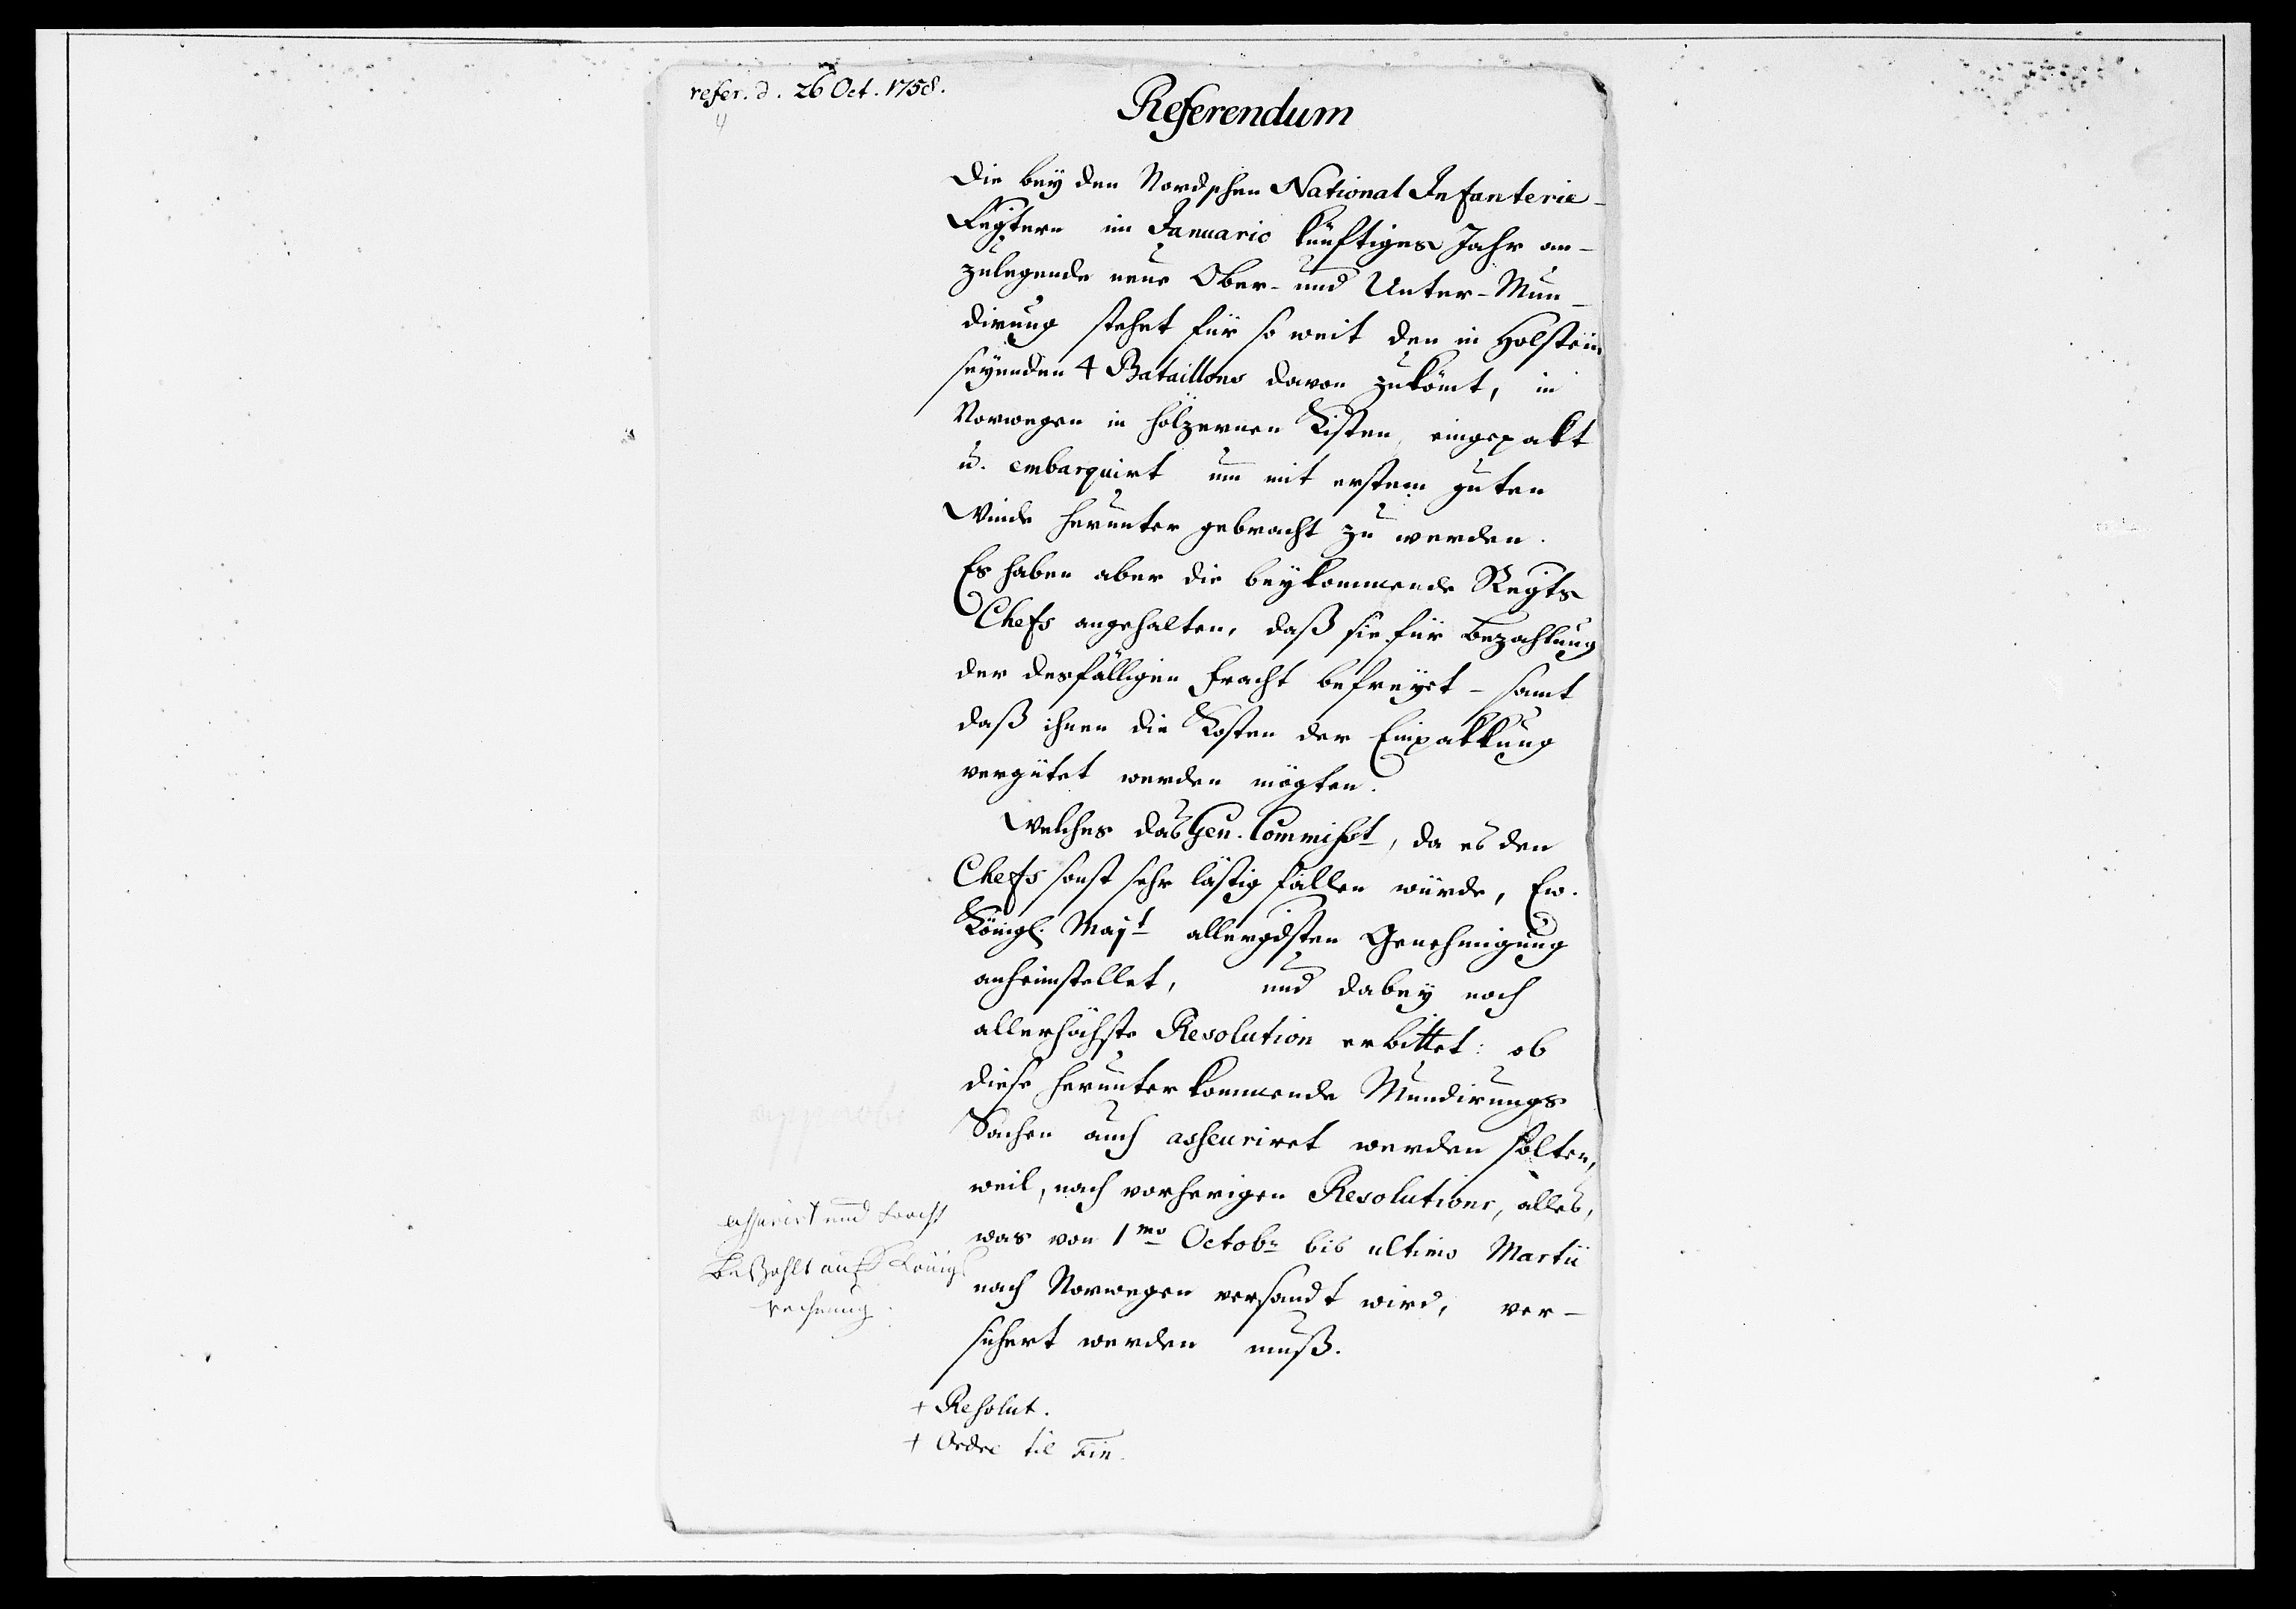 refer. d. 26 Oct. 1758.
4
Referendum
Die bey den Nordschen National Infanterie-
Regtern im Januario künftiges Jahr an-
zulegende neue Ober- und Unter-Mun-
dirung stehet für so weit den in Holstein
seyenden 4 Bataillons davon zukömt, in
Norwegen in hölzernen Kisten, eingepakt
u. embarquirt um mit erstem guten
Winde herunter gebracht zu werden.
Es haben aber die beykommende Regts
Chefs angehalten, daß sie für Bezahlung
der desfälligen Fracht befreyet - samt
daß ihnen die Kosten der Einpakkung
vergütet werden mögten.
Welches das Gen. Commisst, da es den
Chefs sonst sehr lästig fallen würde, Ew.
Königl. Majt allergdsten Genehmigung
anheimstellet, und dabey noch
allerhöchste Resolution erbittet: ob
diese herunter kommende Mundirungs
Sachen auch asseuriret werden solten,
weil, nach vorherigen Resolutions, alles,
was von 1mo Octobr bis ultimo Martii
nach Norwegen versandt wird, ver-
sichert werden muß.
approbe
assurirt und Fracht
beZahlt auf Königl
rechnung.
+ Resolut.
+ Ordre til Fin.